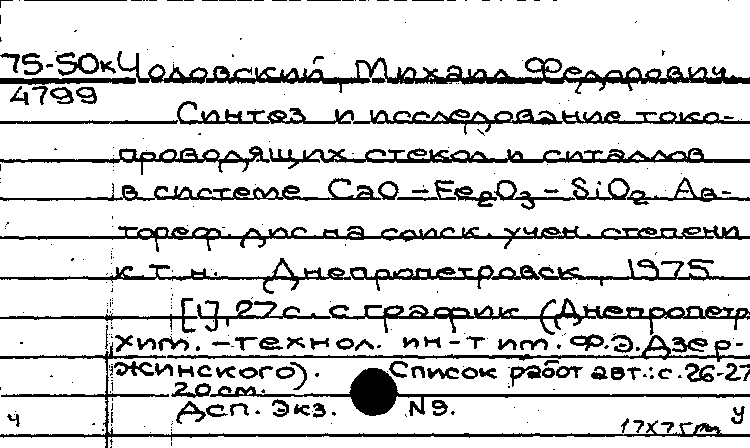 75-50к Чоловский, Михаил Федорович
4799
Синтез и исследование токо-
проводящих стекол и ситаллов
в системе CaO – Fe2O3 – SiO2. Ав-
тореф. дис на соиск. учен. степени
к. т. н. Днепропетровск, 1975
[1], 27 с. с график (Днепропетр
хим. – технол. ин-т им. Ф.Э. Дзер-
жинского). Список работ авт.: с. 26-27
20 см.
Дсп. Экз. N9.
ч
у
17X75